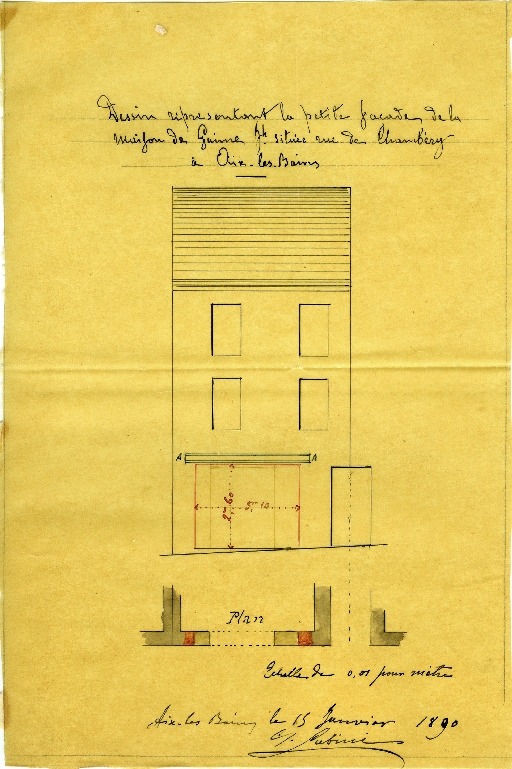 Dessin représentant la petite façade de la
maison de Gaime Jh située rue de Chambéry
à Aix-les-Bains
A A
2m,60
3m,10
Plan
Echelle de 0,01 pour mètre
Aix-les Bains le 15 Janvier 1890